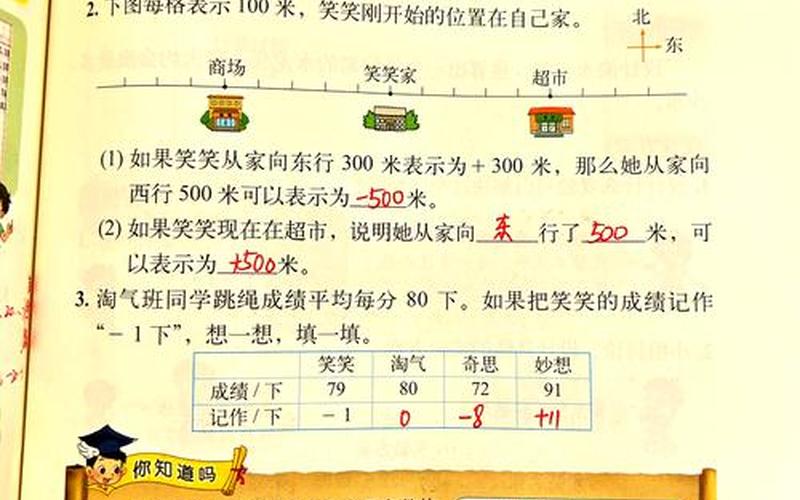 2.下图每格表示 100 米，笑笑刚开始的位置在自己家。
北
东
商场
笑笑家
超市
(1) 如果笑笑从家向东行 300 米表示为+300 米，那么她从家向
西行 500 米可以表示为-500米。
(2) 如果笑笑现在在超市，说明她从家向东行了500米，可
以表示为+500米。
3. 淘气班同学跳绳成绩平均每分 80 下。如果把笑笑的成绩记作
“－1下”，想一想，填一填。
笑笑 淘气 奇思 妙想
成绩/下 79 80 72 91
记作/下 －1 0 -8 +11
你知道吗